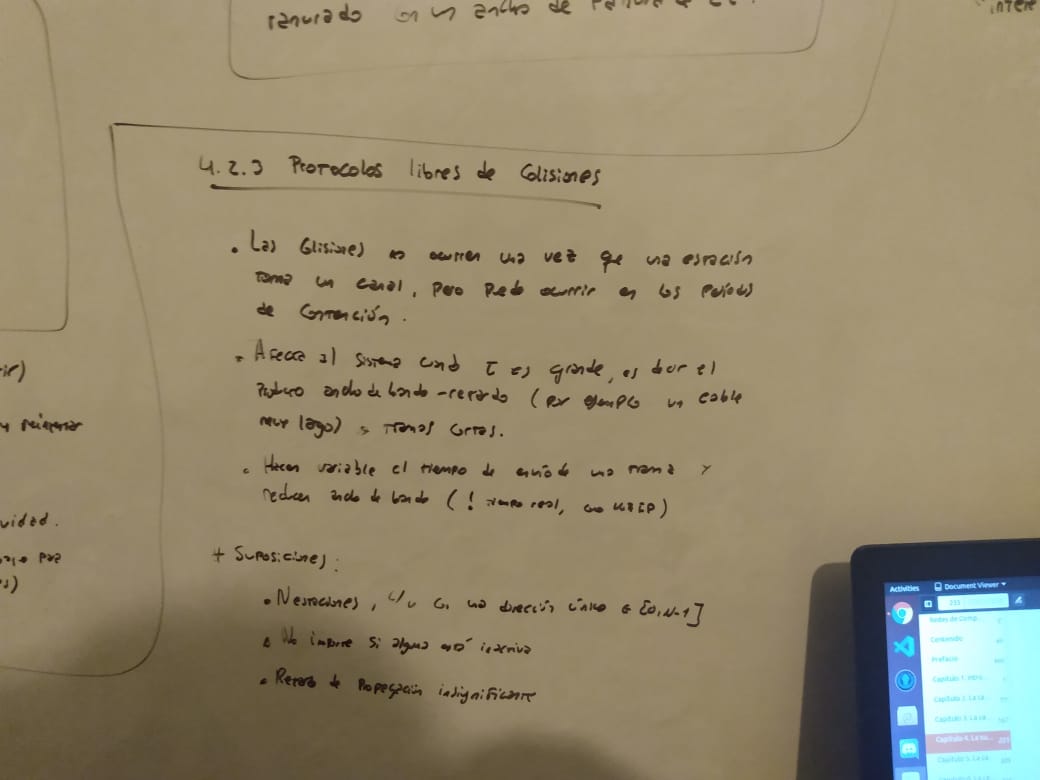 ranurado en un ancho de
intere
4.2.3 Protocolos libres de Colisiones
• Las Colisiones no ocurren una vez que una estación
toma un canal, pero puede ocurrir en los Períodos
de Contención.
• Afecta al sistema cuando τ es grande, es decir el
producto ancho de banda-retardo (por ejemplo un cable
muy largo) y tramas cortas.
• Hacen variable el tiempo de envío de una trama y
reducen ancho de banda (! tiempo real, como VoIP)
+ Suposiciones:
• N estaciones, c/u con una dirección única ∈ [0, N-1]
• No importa si alguna está inactiva
• Retardo de Propagación insignificante
ir)
vidad.
Activities
Document Viewer
233
Redes de Comp...
Contenido
Prefacio
Capítulo 1. Intro...
Capítulo 2. La ca...
Capítulo 3. La ca...
Capítulo 4. La su...
Capítulo 5. La ca...